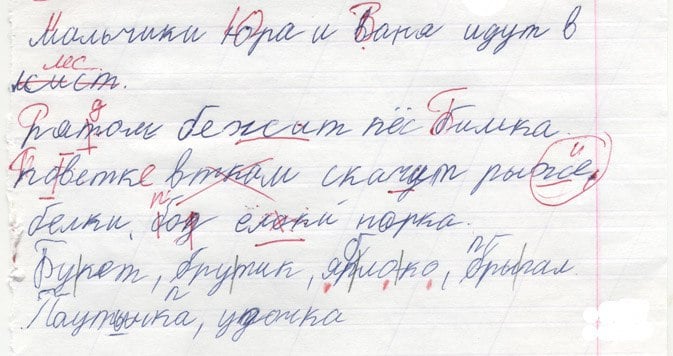 Мальчики Юра и Ваня идут в
лес.
Рядом бежит пёс Бимка.
По ветке вткам скачут рыжие
белки, под ёлкй норка.
Букет, брутик, яблоко, прыгал.
Паутинка, удочка